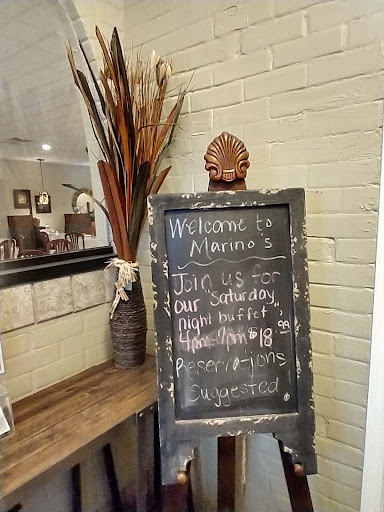 Welcome to
Marino's
Join us for
our Saturday
night buffet
4pm-9pm $18.99
Reservations
Suggested!